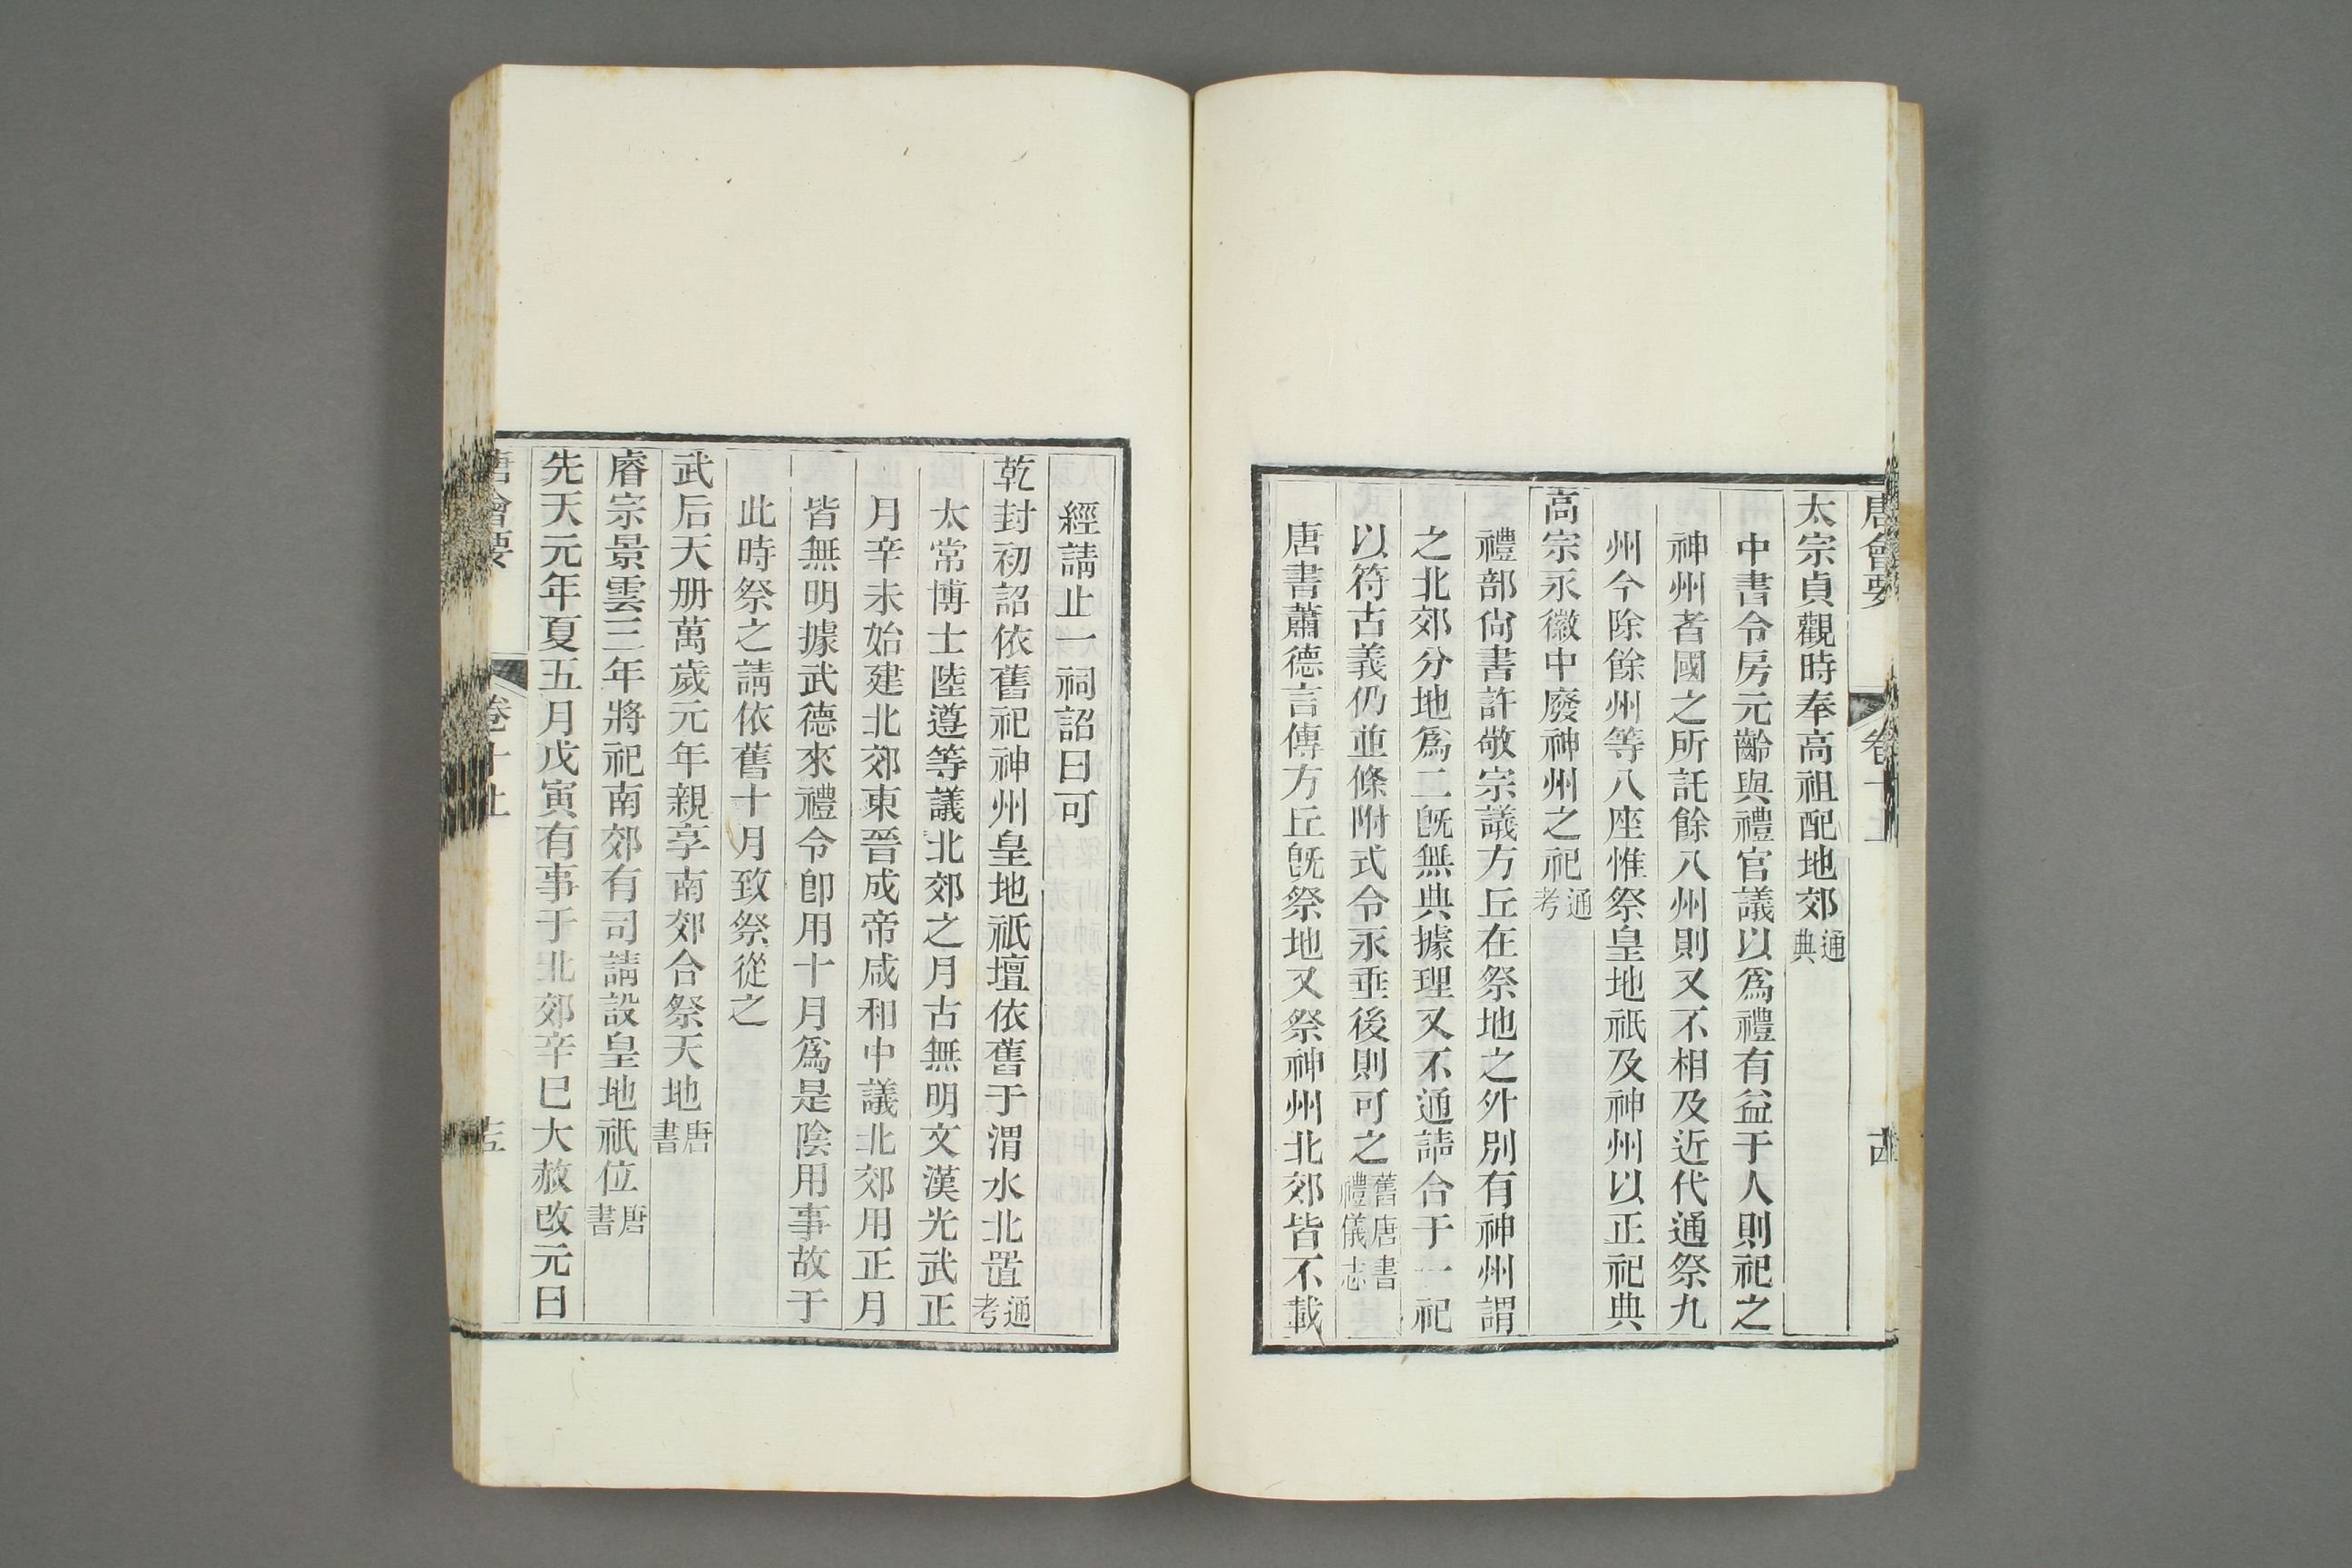 唐會要 卷十上 十四
太宗貞觀時奉高祖配地郊通典
中書令房元齡與禮官議以爲禮有益于人則祀之
神州者國之所託餘八州則又不相及近代通祭九
州今除餘州等八座惟祭皇地祇及神州以正祀典
高宗永徽中廢神州之祀通考
禮部尙書許敬宗議方丘在祭地之外別有神州謂
之北郊分地爲二旣無典據理又不通請合于一祀
以符古義仍並條附式令永垂後則可之舊唐書禮儀志
唐書蕭德言傳方丘旣祭地又祭神州北郊皆不載
經請止一祠詔曰可
乾封初詔依舊祀神州皇地祇壇依舊于渭水北置通考
太常博士陸遵等議北郊之月古無明文漢光武正
月辛未始建北郊東晉成帝咸和中議北郊用正月
皆無明據武德來禮令卽用十月爲是陰用事故于
此時祭之請依舊十月致祭從之
武后天册萬歲元年親享南郊合祭天地唐書
睿宗景雲三年將祀南郊有司請設皇地祇位唐書
先天元年夏五月戊寅有事于北郊辛巳大赦改元曰
唐會要 卷十上 十五